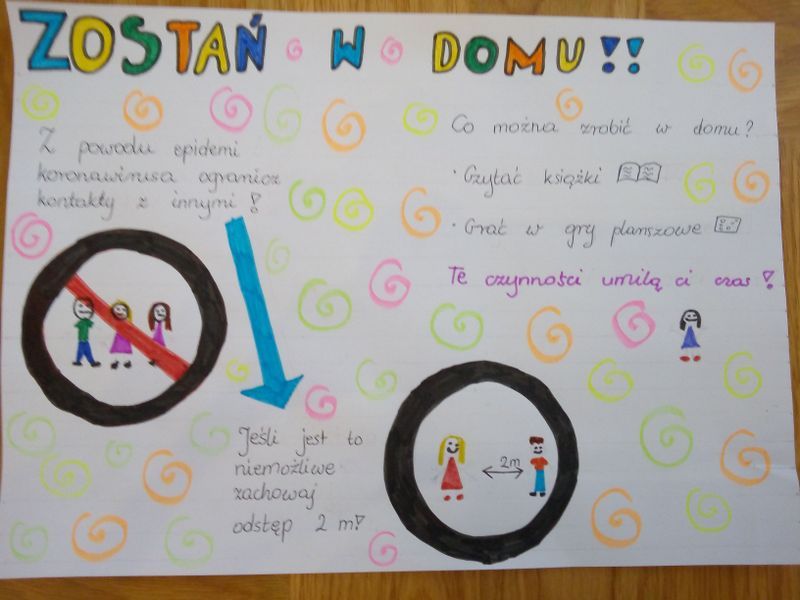 ZOSTAŃ W DOMU!!
Z powodu epidemi
koronawirusa ogranicz
kontakty z innymi!
Co można zrobić w domu?
· Czytać książki
· Grać w gry planszowe
Te czynności umilą ci czas!
Jeśli jest to
niemożliwe
zachowaj
odstęp 2 m!
2m